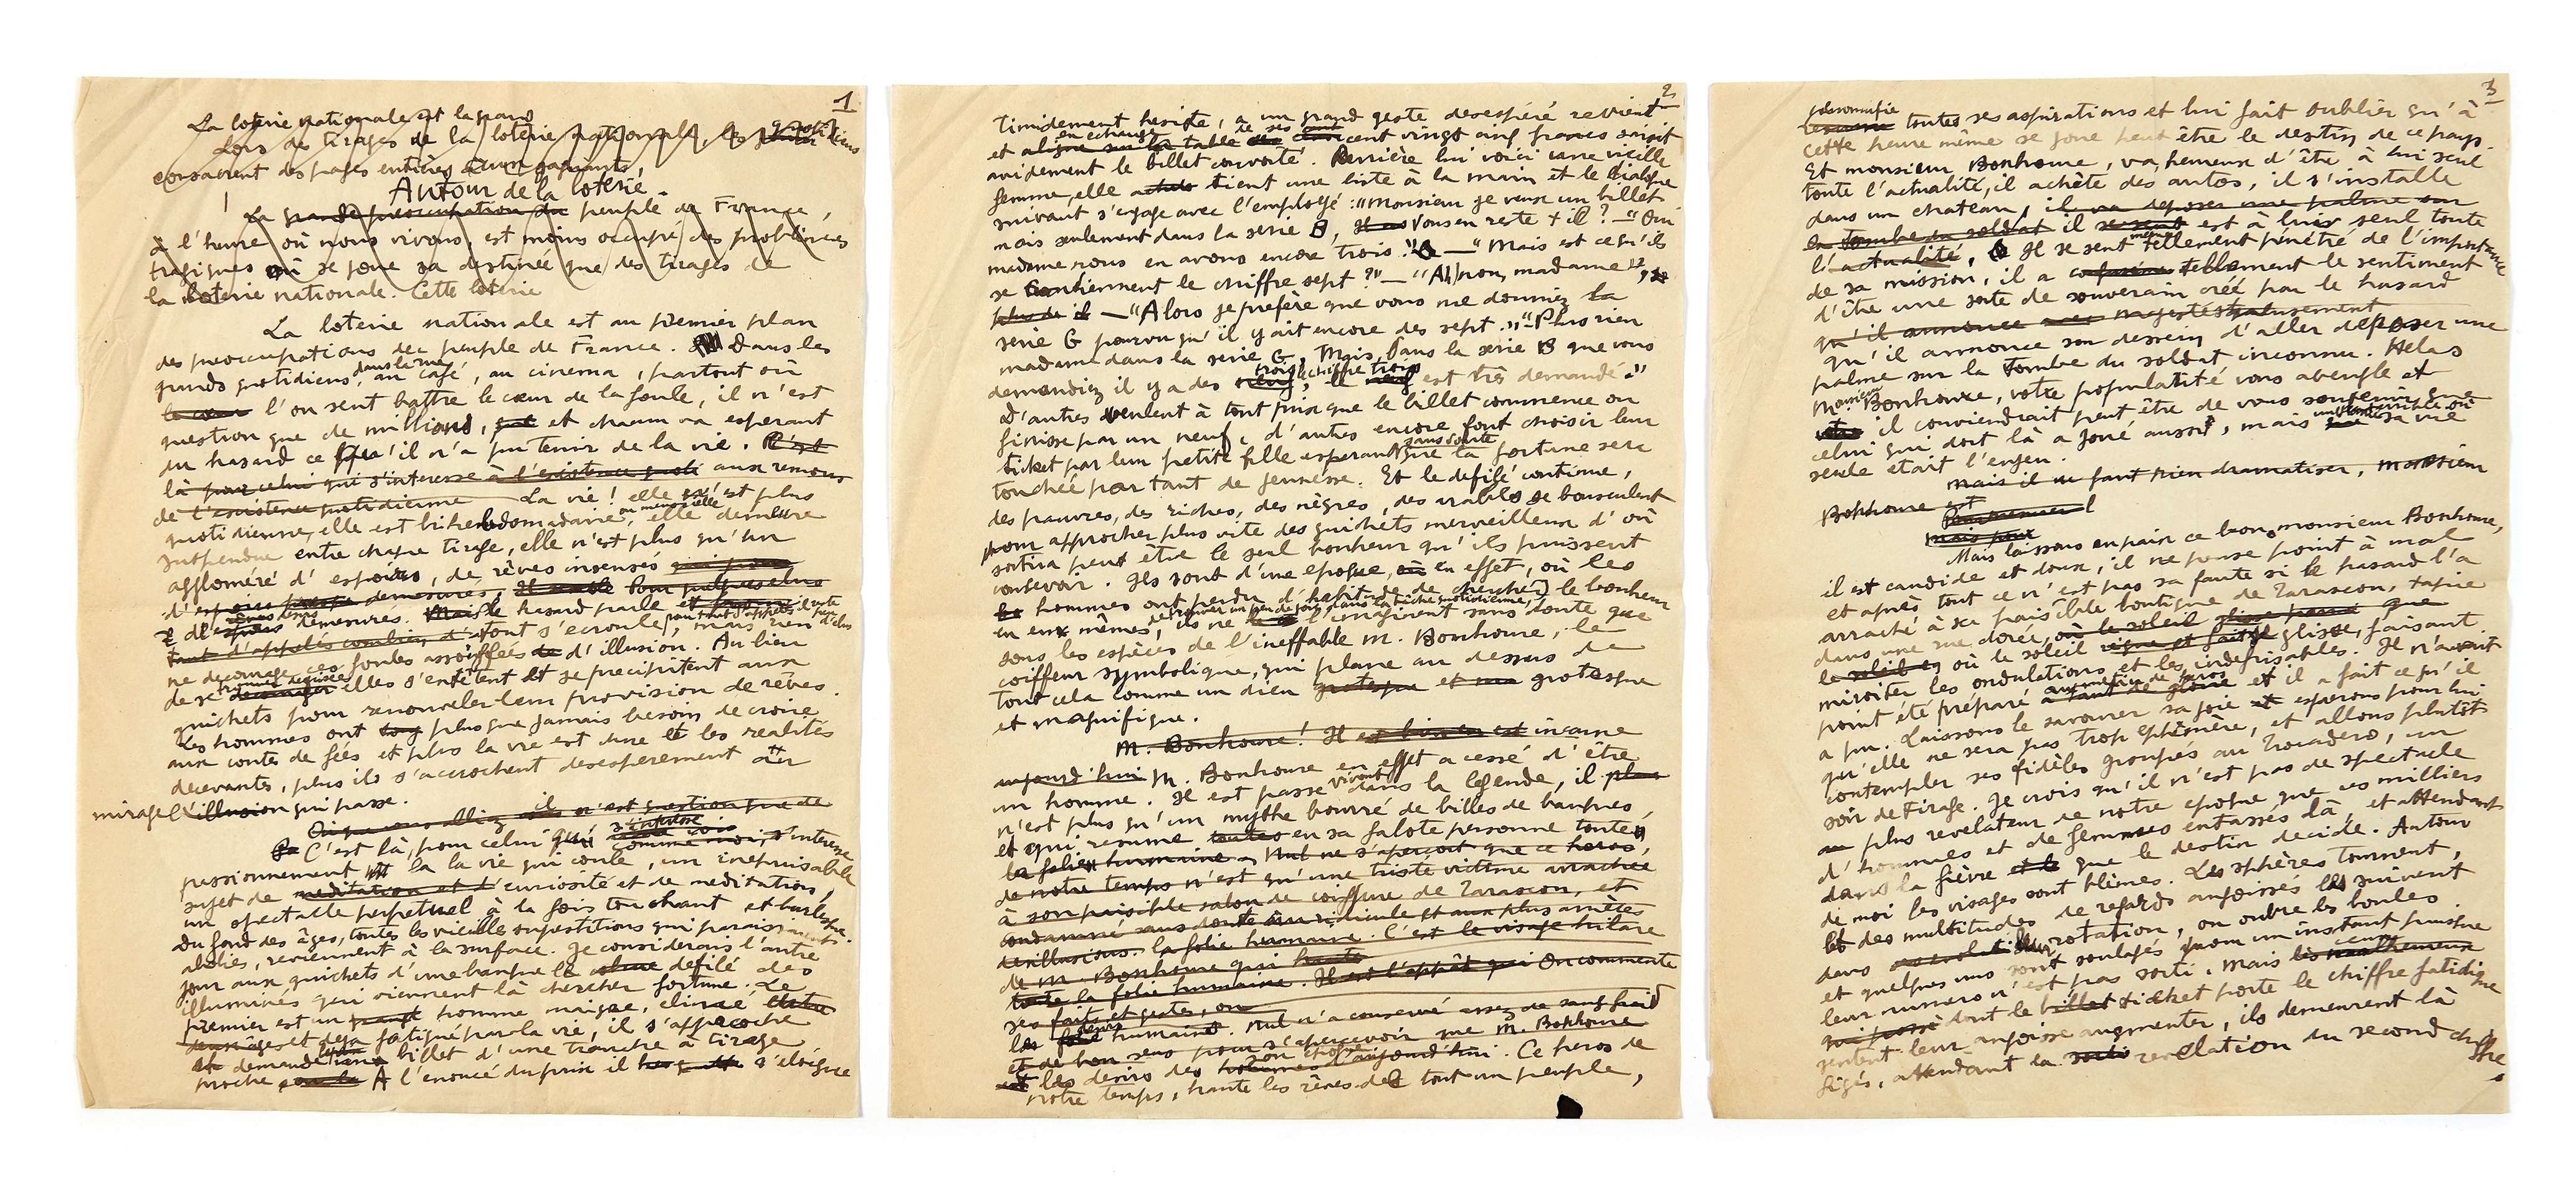 1
La loterie nationale est la grand
Lors des tirages de la loterie nationale, les quotidiens
consacrent des pages entières aux gagnants
Autour de la loterie.
La grande préoccupation du peuple de France,
à l'heure où nous vivons, est moins occupé des problèmes
tragiques où se joue sa destinée que des tirages de
la loterie nationale. Cette loterie
La loterie nationale est au premier plan
des preoccupations du peuple de France. Dans les
grands quotidiens, dans la rue, au café, au cinema, partout où
le coeur l'on sent battre le cœur de la foule, il n'est
question que de millions, et chacun va esperant
du hasard ce qu'il n'a pu tenir de la vie. C'est
là pour celui qui s'interesse à l'existence quoti aux remous
de l'existence quotidienne La vie! elle n'est plus
quotidienne, elle est bihebdomadaire, ou mensuelle, elle demeure
suspendue entre chaque tirage, elle n'est plus qu'un
aggloméré d'espoirs, de rêves insensés
d'espoirs demesurés,
et de rêves demesurés. Mais le hasard parle et
tant d'appelés combien d' tout s'ecroule, mais rien
ne decourage ces foules assoiffées de d'illusion. Au lieu
de se decourager elles s'entêtent et se precipitent aux
guichets pour renouveler leur provision de rêves.
Les hommes ont plus que jamais besoin de croire
aux contes de fées et plus la vie est dure et les realités
decevantes, plus ils s'accrochent desesperement au
mirage l'illusion qui passe.
Où que vous alliez il n'est question que de
C'est là, pour celui qui comme moi, s'interesse
passionnement à la vie qui coule, un inepuisable
sujet de meditation et d' curiosité et de meditation,
un spectacle perpetuel à la fois touchant et burlesque.
Du fond des âges, toutes les vieilles superstitions qui paraissaient
abolies, reviennent à la surface. Je considerais l'autre
jour aux guichets d'une banque le defilé des
illuminés qui viennent là chercher fortune. Le
premier est un homme maigre, elimé
deux âges et deja fatigué par la vie, il s'approche
et demande un billet d'une tranche à tirage
proche A l'enoncé du prix il s'éloigne
2
timidement hesite, a un grand geste desespéré revient
et aligne sur la table en echange de ses cent vingt cinq francs saisit
avidement le billet convoité. Derrière lui voici une vieille
femme, elle achete tient une liste à la main et le dialogue
suivant s'engage avec l'employé: "Monsieur je veux un billet
mais seulement dans la serie B, Vous en reste t il? — "Oui
madame nous en avons encore trois". — "Mais est ce qu'ils
se contiennent le chiffre sept?" — "Ah non, madame",
plus de — "Alors je prefère que vous me donniez la
serie G pourvu qu'il y ait encore des sept." — "Plus rien
madame dans la serie G, Mais, dans la serie B que vous
demandiez il y a des trois, le chiffre trois est très demandé."
D'autres veulent à tout prix que le billet commence ou
finisse par un neuf, d'autres encore font choisir leur
ticket par leur petite fille esperant sans doute que la fortune sera
touchée par tant de jeunesse. Et le defilé continue,
des pauvres, des riches, des nègres, des arabes se bousculent
pour approcher plus vite des guichets merveilleux d'où
sortira peut être le seul bonheur qu'ils puissent
concevoir. Ils sont d'une epoque, en effet, où les
hommes ont perdu l'habitude de chercher le bonheur
en eux mêmes, de trouver un peu de joie dans la tâche quotidienne, ils ne l'imaginent sans doute que
sous les espèces de l'ineffable M. Bonhoure, le
coiffeur symbolique, qui plane au dessus de
tout cela comme un dieu grotesque et grotesque
et magnifique.
M. Bonhoure! Il est bien en est incarne
aujourd'hui M. Bonhoure en effet a cessé d'être
un homme. Il est passé vivant dans la legende, il plus
n'est plus qu'un mythe bourré de billets de banques,
et qui resume toutes en sa falote personne toutes
les folies humaine. Nul ne s'aperçoit que ce heros,
de notre temps n'est qu'une triste victime arrachée
à son paisible salon de coiffure de Tarascon, et
condamné sans doute au ridicule et aux plus amères
desillusions. la folie humaine. C'est le visage hilare
de M. Bonhoure qui
toute la folie humaine. Il est l'appât qui On commente
ses faits et gestes, on
les humaine. Nul n'a conservé assez de sang froid
et de bon sens pour s'apercevoir que M. Bonhoure
est les desirs des hommes d'aujourd'hui. Ce heros de
notre temps, hante les rêves de tout un peuple,
3
personnifie toutes ses aspirations et lui fait oublier qu'à
cette heure même se joue peut être le destin de ce pays.
Et monsieur Bonhoure, va, heureux d'être à lui seul
toute l'actualité, il achète des autos, il s'installe
dans un chateau, il va deposer une palme sur
la tombe du soldat il se sent est à lui seul toute
l'actualité, Il se sent même tellement pénétré de l'importance
de sa mission, il a tellement le sentiment
d'être une sorte de souverain créé par le hasard
qu'il annonce majestueusement
qu'il annonce son dessein d'aller déposer une
palme sur la tombe du soldat inconnu. Helas
Monsieur Bonhoure, votre popularité vous aveugle et
il conviendrait peut être de vous souvenir que
celui qui dort là a joué aussi, mais sa vie
seule etait l'enjeu.
Mais il ne faut rien dramatiser, monsieur
Bonhoure est
Mais pour
Mais laissons en paix ce bon monsieur Bonhoure,
il est candide et doux, il ne pense point à mal
et après tout ce n'est pas sa faute si le hasard l'a
arraché à sa paisible boutique de Tarascon, tapie
dans une rue dorée, où le soleil glisse parmi que
le soleil où le soleil glisse, faisant
miroiter les ondulations et les indefrisables. Il n'avait
point été préparé au métier de heros et il a fait ce qu'il
a pu. Laissons le savourer sa joie et esperons pour lui
qu'elle ne sera pas trop ephémère, et allons plutôt
contempler ses fidèles groupés au Trocadero, un
soir de tirage. Je crois qu'il n'est pas de spectacle
plus revelateur de notre epoque que ces milliers
d'hommes et de femmes entassés là, et attendant
dans la fièvre que le destin decide. Autour
de moi les visages sont blêmes. Les sphères tournent,
des multitudes de regards angoissés les suivent
dans leur rotation, on ouvre les boules
et quelques uns sont soulagés pour un instant puisque
leur numero n'est pas sorti. Mais ceux
dont le billet ticket porte le chiffre fatidique
sentent leur angoisse augmenter, ils demeurent là
figés, attendant la revelation du second chiffre